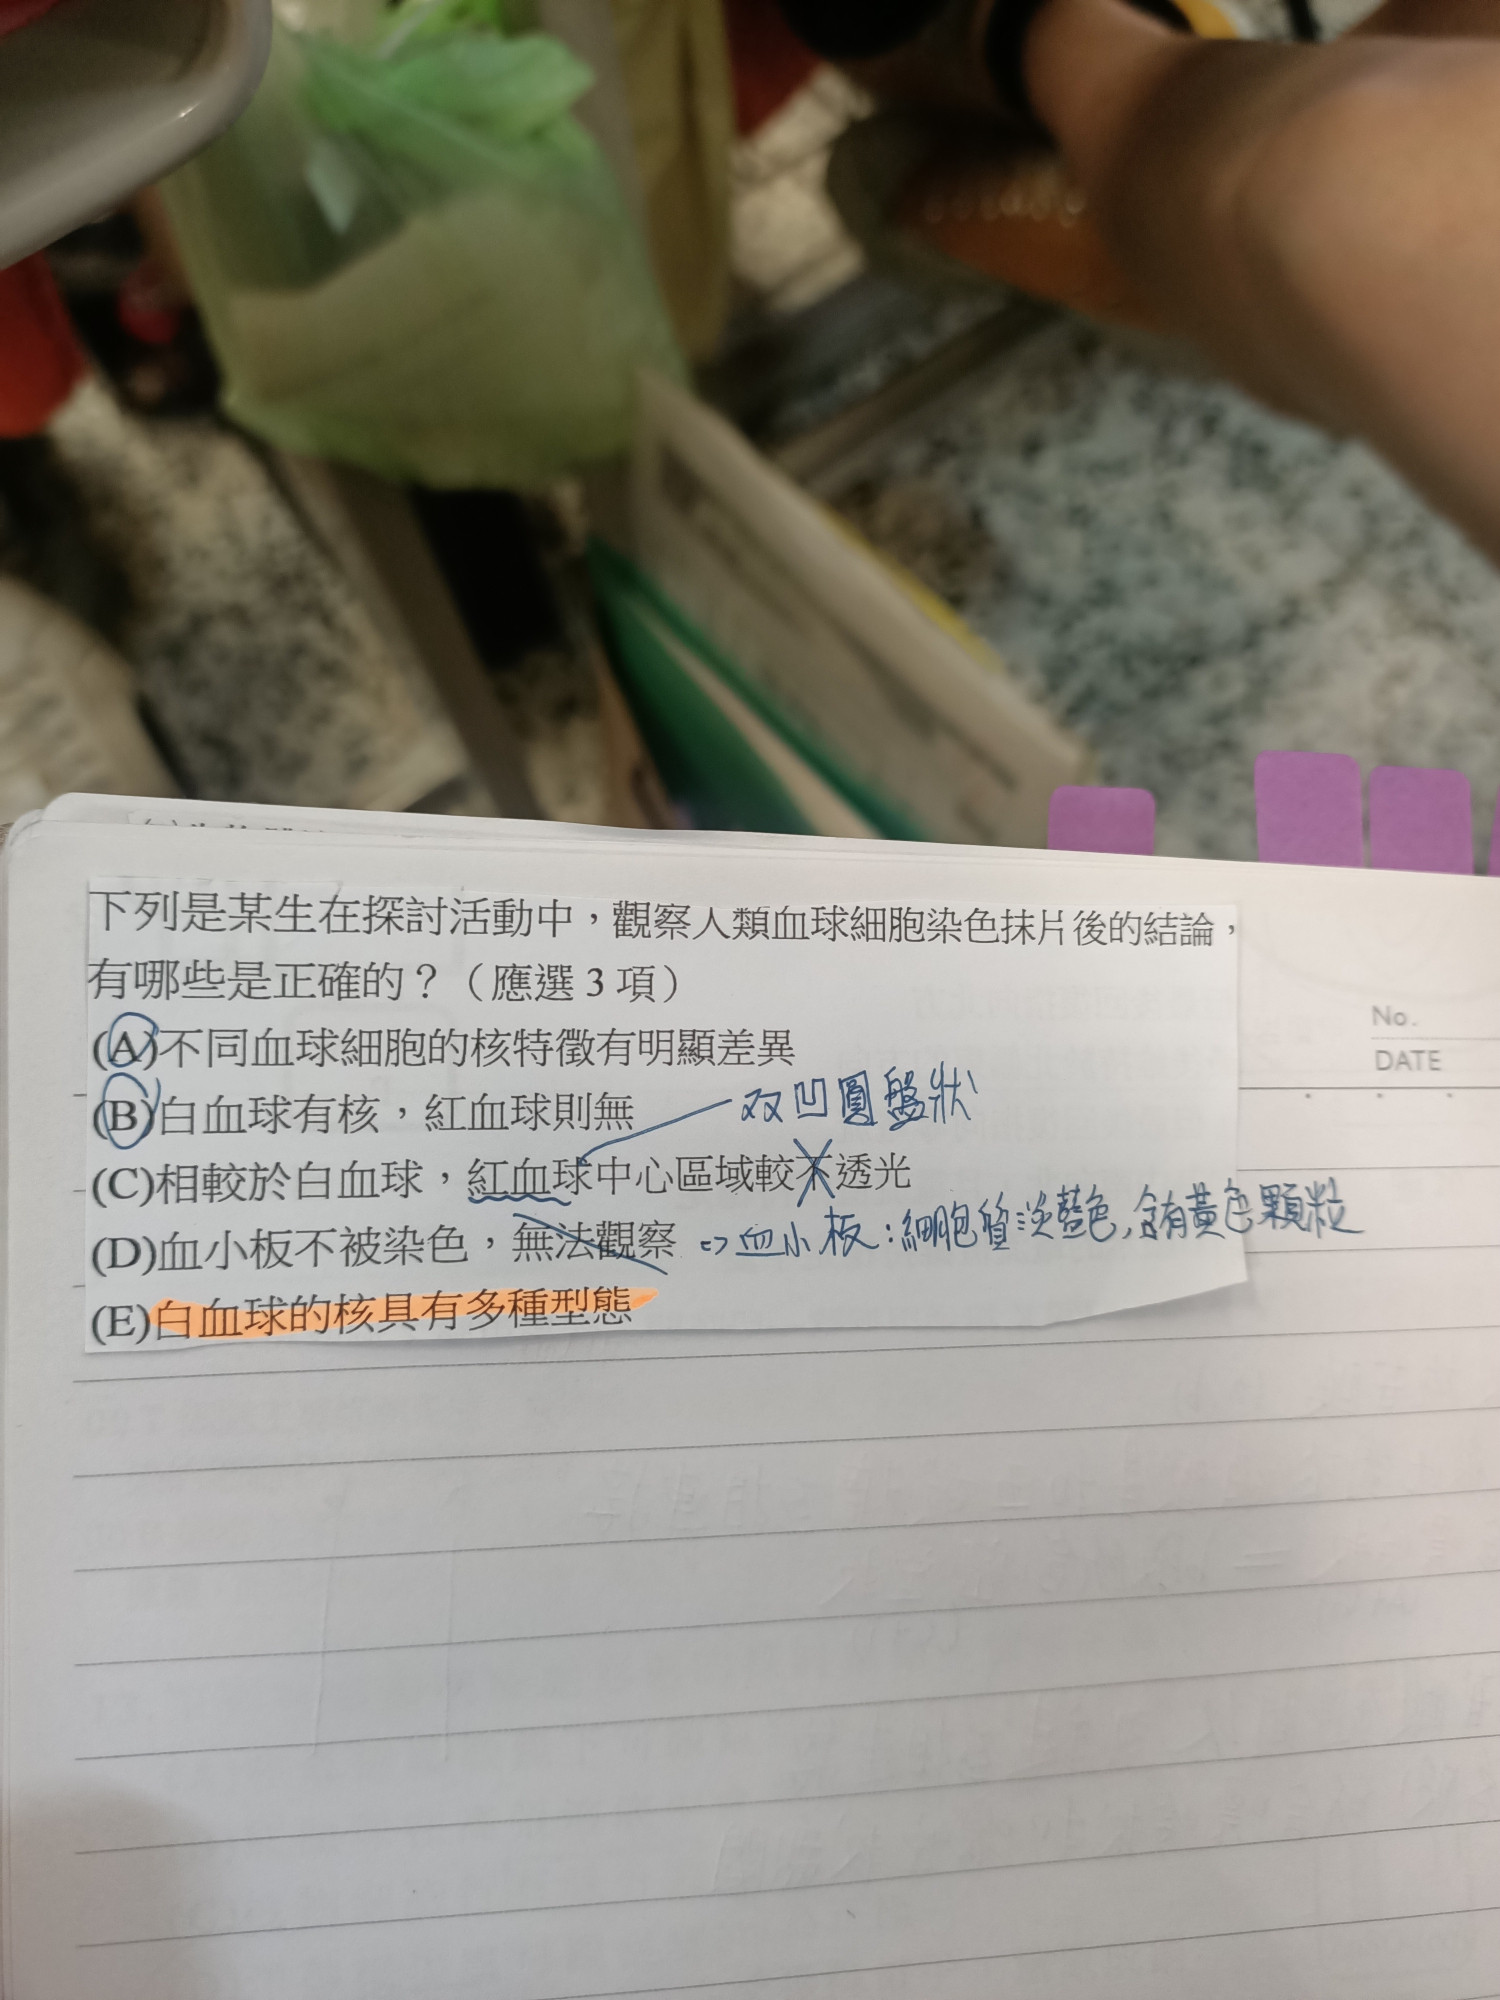 下列是某生在探討活動中，觀察人類血球細胞染色抹片後的結論，
有哪些是正確的？（應選3項）
No.
(A)不同血球細胞的核特徵有明顯差異
DATE
(B)白血球有核，紅血球則無
双凹圓盤狀
(C)相較於白血球，紅血球中心區域較不透光
(D)血小板不被染色，無法觀察
⇨血小板：細胞質淡藍色，含有黃色顆粒
(E)白血球的核具有多種型態